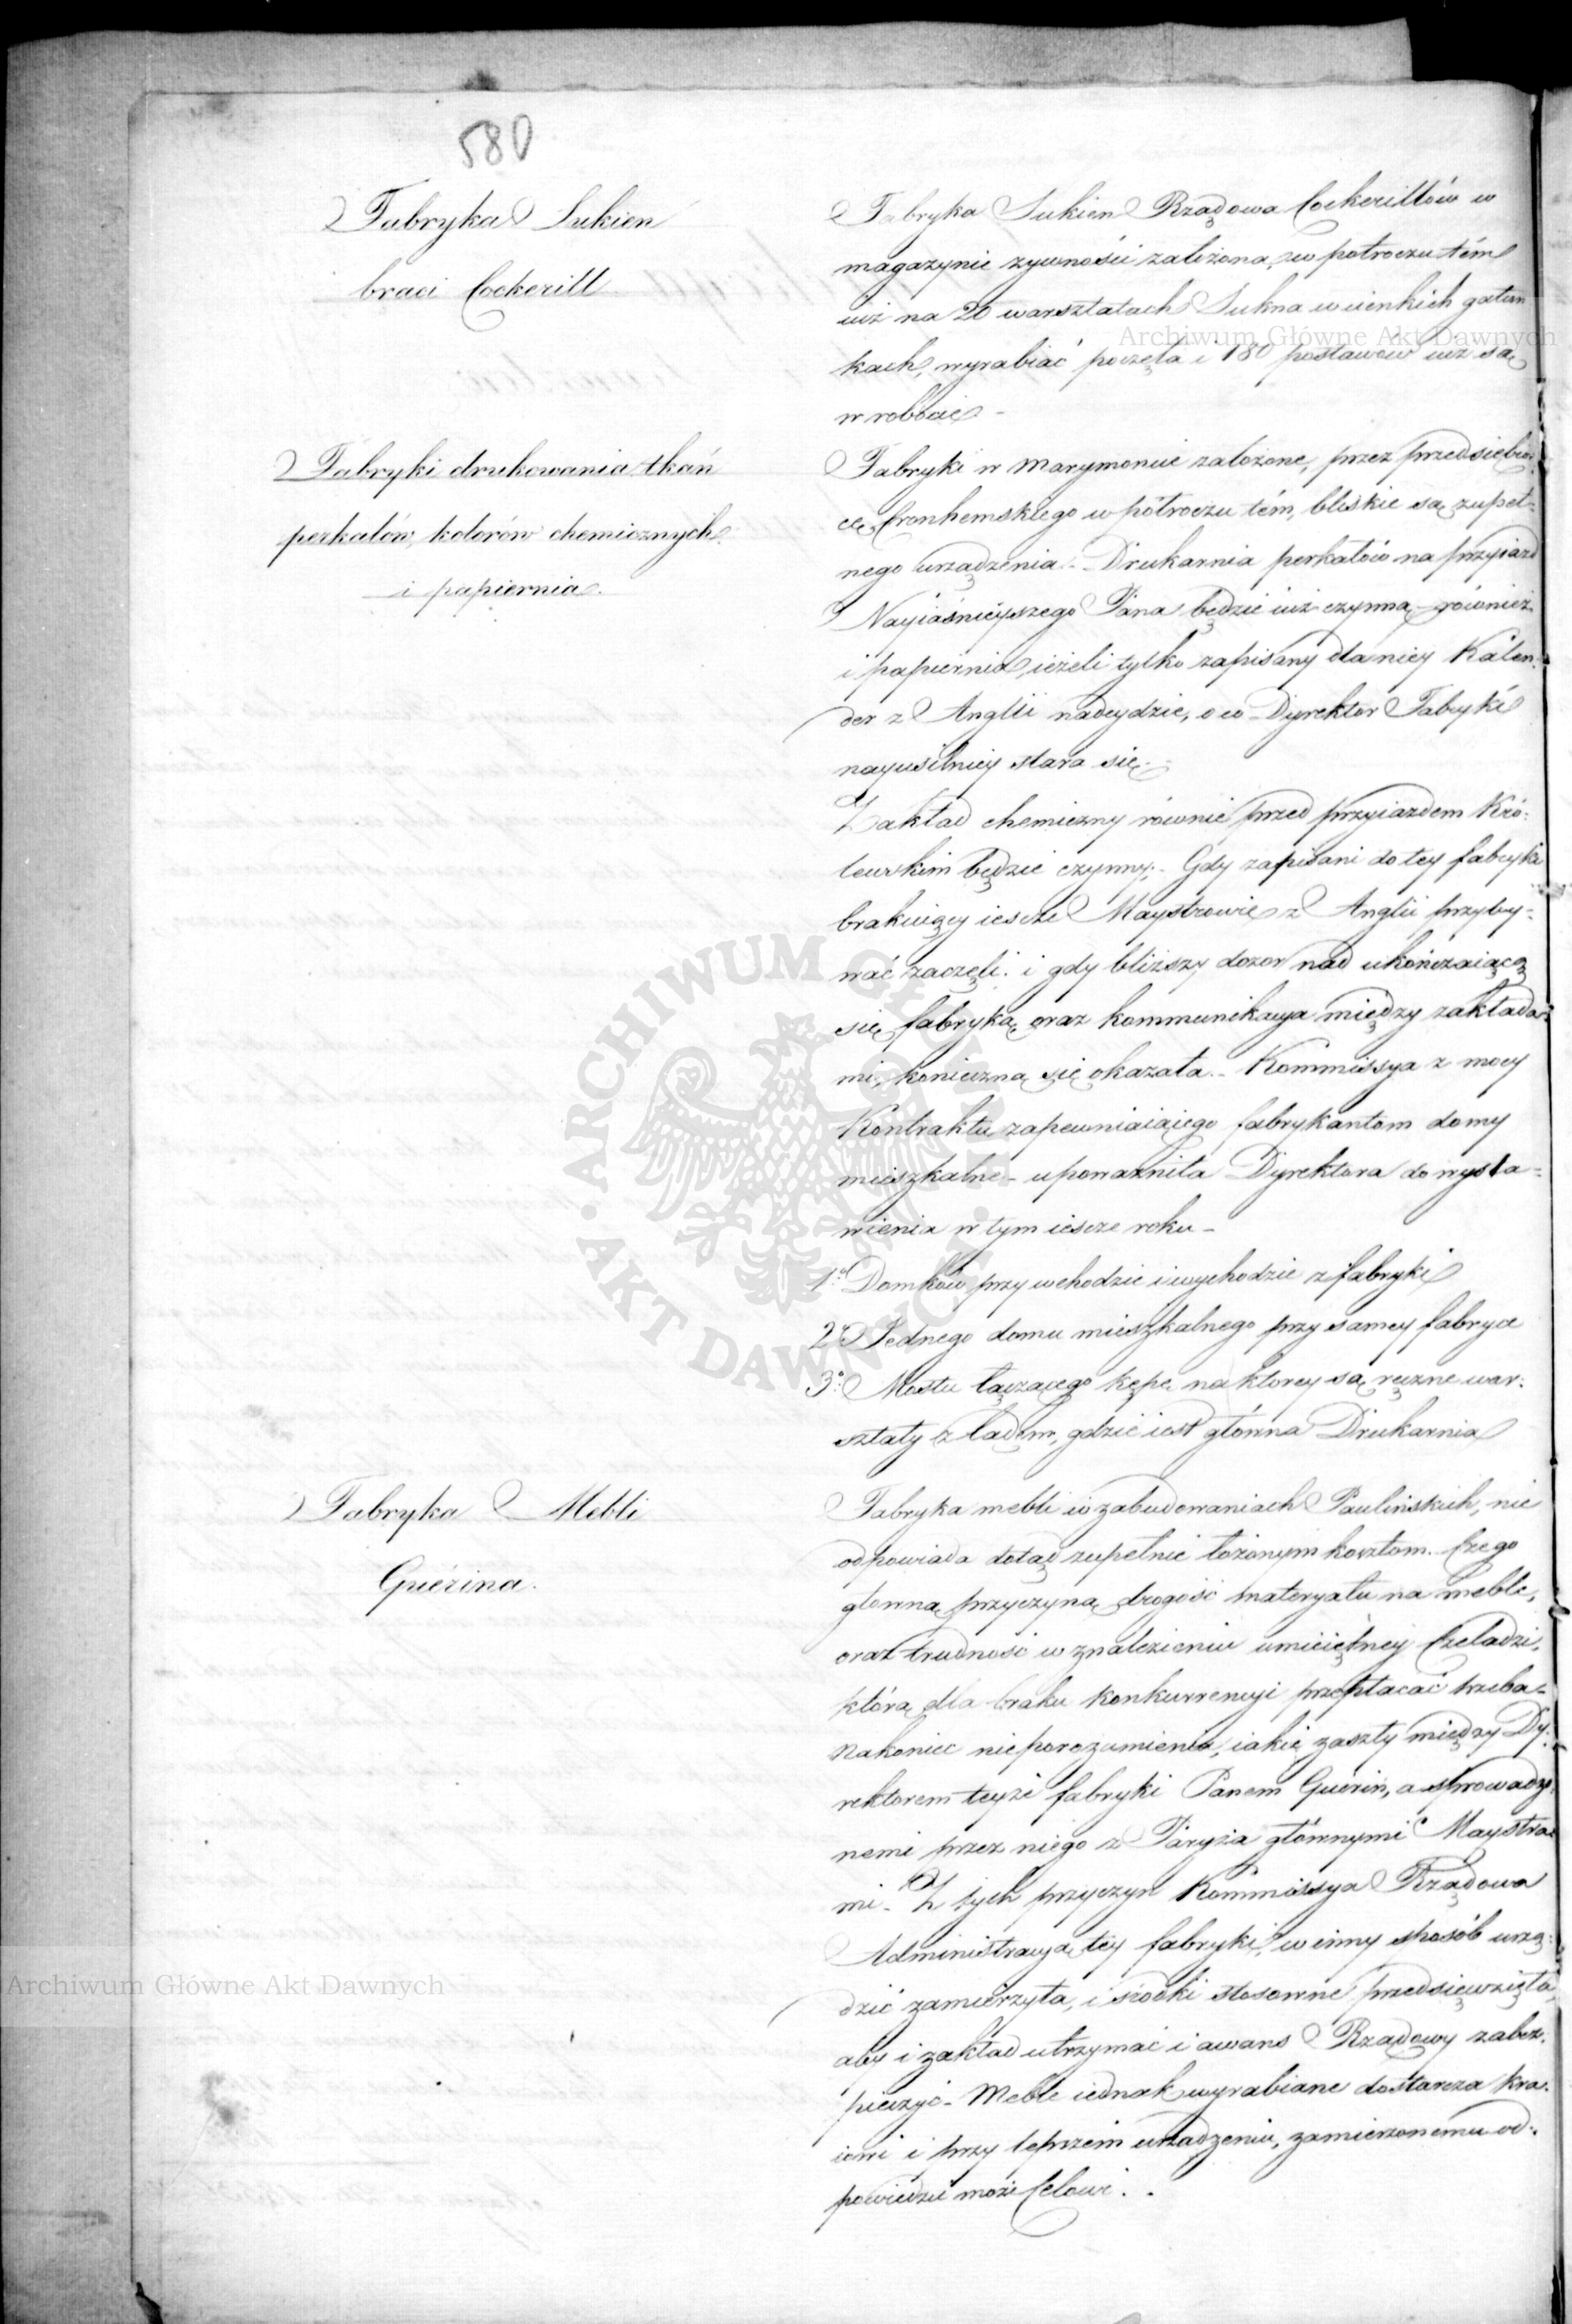 580
Fabryka Sukien
braci Cockerill
Fabryka Sukien Rządowa Cockerillów w
magazynie zywności założona, w półroczu tém
iuż na 20 warsztatach Sukna w cienkich gatun
kach, wyrabiać poczęła i 180 postawów iuż są
w robocie -
Fabryki drukowania tkań
perkalów, kolorów chemicznych
i papiernia.
Fabryki w Marymoncie założone, przez przedsiębior-
cę Fronhemskiego w półroczu tém, bliskie są zupeł-
nego urządzenia. Drukarnia perkalów na przyiazd
Nayiaśnieyszego Pana będzie iuż czynną, również
i papiernia, ieżeli tylko zapisany dla niey Kalen-
der z Anglii nadeydzie, o co Dyrektor Fabryki
nayusilniey stara się.
Zakład chemiczny równie przed przyiazdem Kró-
lewskim będzie czynny; Gdy zapisani do tey fabryki
brakuiący iescze Maystrowie z Anglii przyby-
wać zaczęli. i gdy bliższy dozór nad ukończaiącą
się fabryką oraz kommunikacya między zakłada-
mi, konieczną się okazała. - Kommissya z mocy
Kontraktu zapewniaiącego fabrykantom domy
mieszkalne - upoważniła Dyrektora do wysta-
wienia w tym iescze roku -
1º Domków przy wchodzie i wychodzie z fabryki
2º Jednego domu mieszkalnego przy samey fabryce
3º Mostu łączącego kępę na ktorey są ręczne war-
sztaty z lądem, gdzie iest główna Drukarnia
Fabryka Mebli
Guérina.
Fabryka mebli w zabudowaniach Paulińskich, nie
odpowiada dotąd zupełnie łożonym kosztom. Czego
główną przyczyną drogość materyału na meble,
oraz trudność w znalezieniu umieiętney Czeladzi,
którą dla braku konkurrencyi przepłacać trzeba -
nakoniec nieporozumienia, iakie zaszły między Dy-
rektorem teyże fabryki Panem Guerin, a sprowadzo-
nemi przez niego z Paryża głównymi Maystra-
mi. Z tych przyczyn Kommissya Rządowa
Administracyą tey fabryki, w inny sposób urzą-
dzić zamierzyła, i środki stosowne przedsięwzięła,
aby i zakład utrzymać i awans Rządowy zabez-
pieczyć - Meble iednak wyrabiane dostarcza kra-
iowi i przy lepszem urządzeniu, zamierzonemu od-
powiedzieć może Celowi. .
Archiwum Główne Akt Dawnych
ARCHIWUM GŁÓWNE · AKT DAWNYCH ·
Archiwum Główne Akt Dawnych